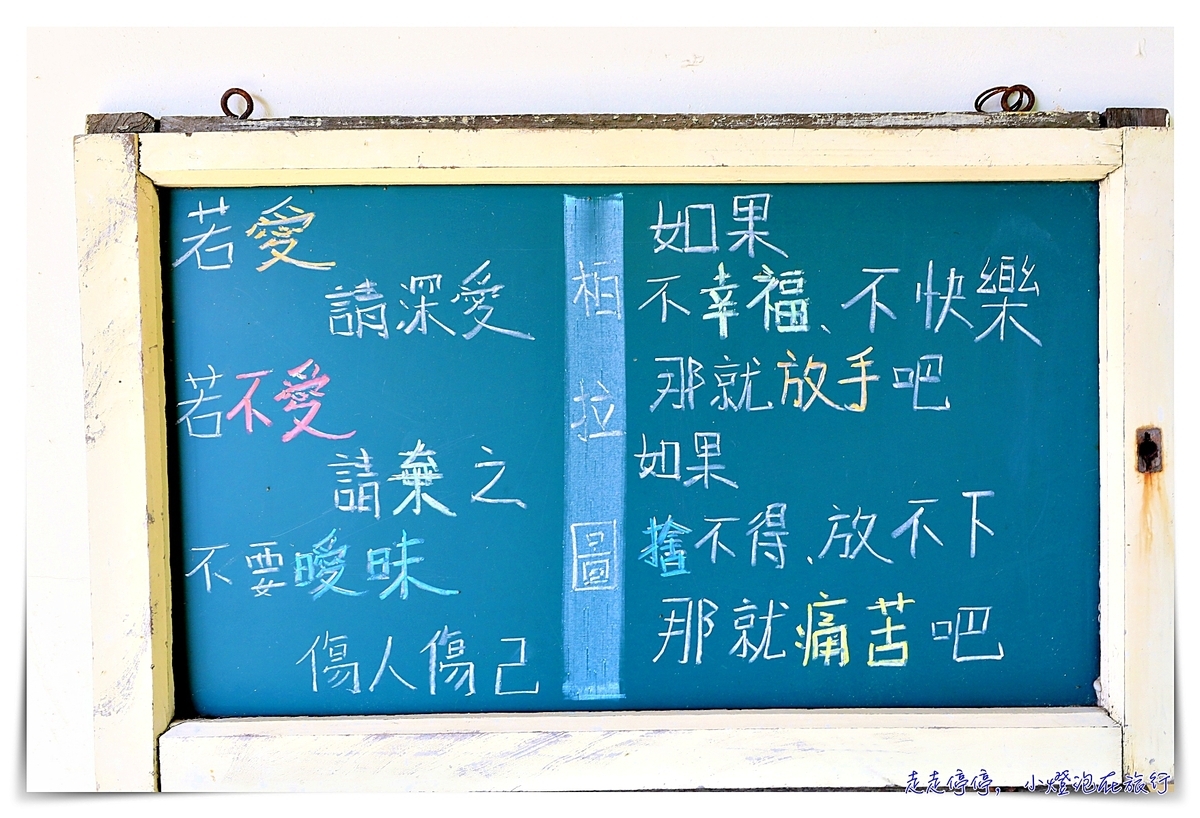 若愛
請深愛
若不愛
請棄之
不要曖昧
傷人傷己
柏拉圖
如果
不幸福、不快樂
那就放手吧
如果
捨不得、放不下
那就痛苦吧
走走停停，小燈泡在旅行